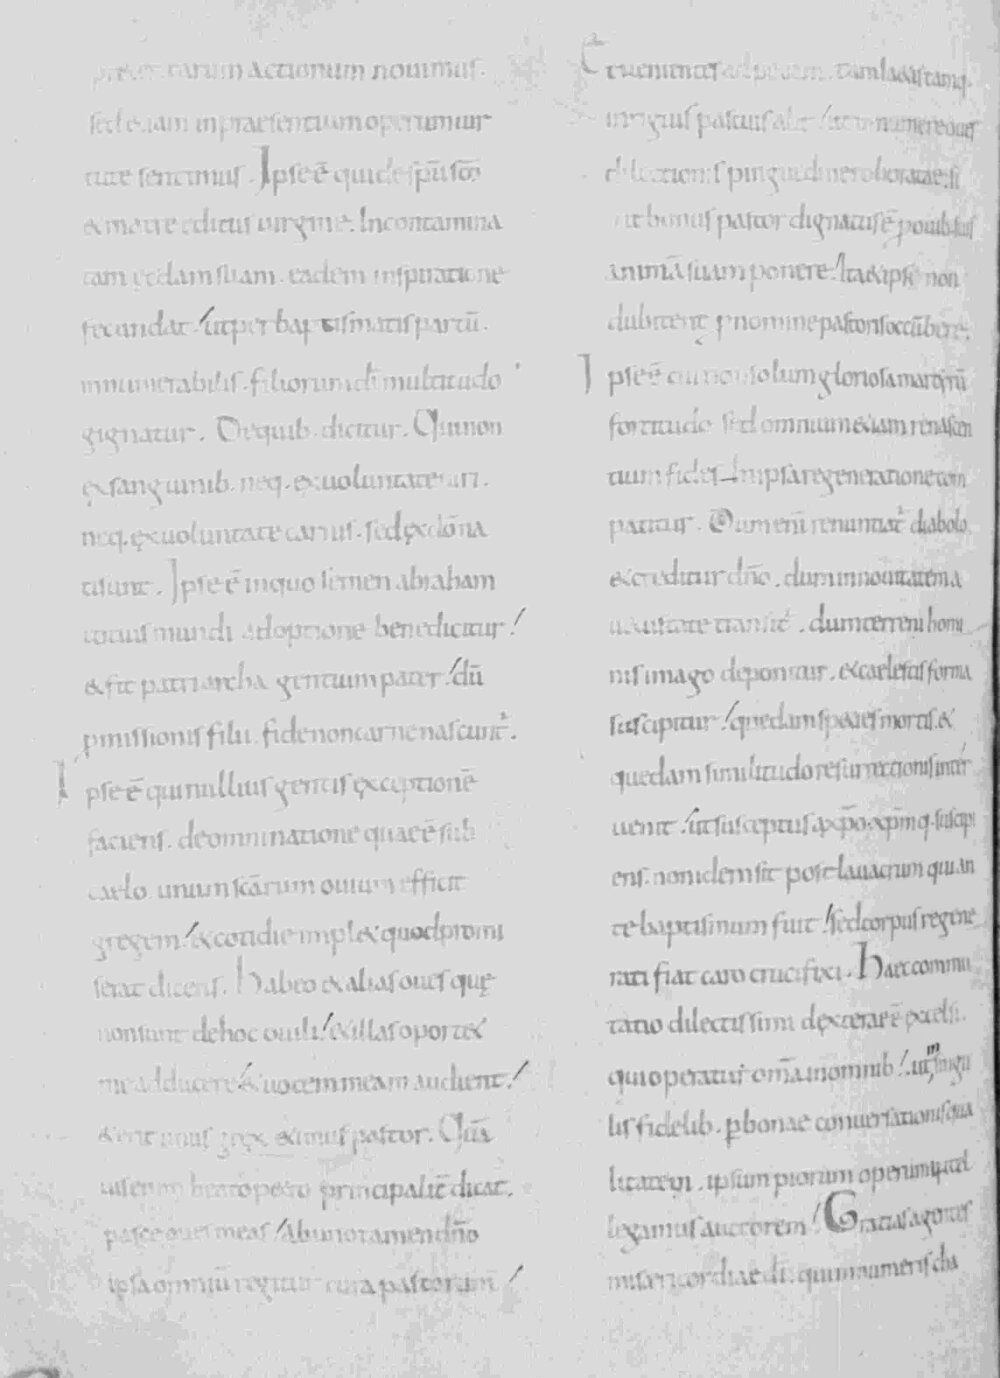 praeteritarum actionum nouimus.
sed etiam in praesentium operum uir
tute sentimus. Ipse ē qui de sp̄u sc̄o
& matre editus uirgine. Incontamina
tam ęcclam suam. eadem inspiratione
fecundat. ut per baptismatis partū.
innumerabilis. filiorum dī multitudo
gignatur. De quib. dicitur. Qui non
ex sanguinib. neq. ex uoluntate uiri.
neq. ex uoluntate carnis. sed ex dō na
ti sunt. Ipse ē in quo semen abraham
totius mundi adoptione benedicitur.
& fit patriarcha gentium pater. dū
pmissionis filii. fide non carne nascunt.
Ipse ē qui nullius gentis exceptionē
faciens. de omni natione quae ē sub
caelo. unum scārum ouium efficit
gregem. & cotidie impl& quod promi
serat dicens. Habeo & alias oues quę
non sunt de hoc ouili. & illas oport&
me adducere & uocem meam audient.
& erit unus grex & unus pastor. Quā
uis enim beato petro principalit dicat.
pasce oues meas. Ab uno tamen dn̄o
ipsa omniū regitur cura pastorum.
Et uenientes ad petram. tam laetis tamq.
inriguis pastuis alit. ut innumere oues
dilectionis pinguedine roboratae. si
ut bonus pastor dignatus ē p ouib. suis
animā suam ponere. Ita & ipse non
dubitent p nomine pastoris occūbere.
Ipse ē cui non solum gloriosa martyrū
fortitudo sed omnium etiam renascen
tium fides. In ipsa regeneratione com
patitur. Dum enī renuntiat diabolo.
& creditur dn̄o. dum in nouitatem a
uetustate transit. dum terreni homi
nis imago deponitur. & caelestis forma
suscipitur. quedam species mortis. &
quedam similitudo resurrectionis inter
uenit. ut susceptus a xp̄o. xp̄mq. suscipi
ens. non idem sit post lauacrum qui an
te baptismum fuit. sed corpus regene
rati fiat caro crucifixi. Haec commu
tatio dilectissimi dexterae ē excelsi.
qui operatur om̄a in omnib. ut in singu
lis fidelib. p bonae conuersationis qua
litatem. ipsum piorum operum intel
legamus auctorem. Gratias agentes
misericordiae dī. qui innumeris cha